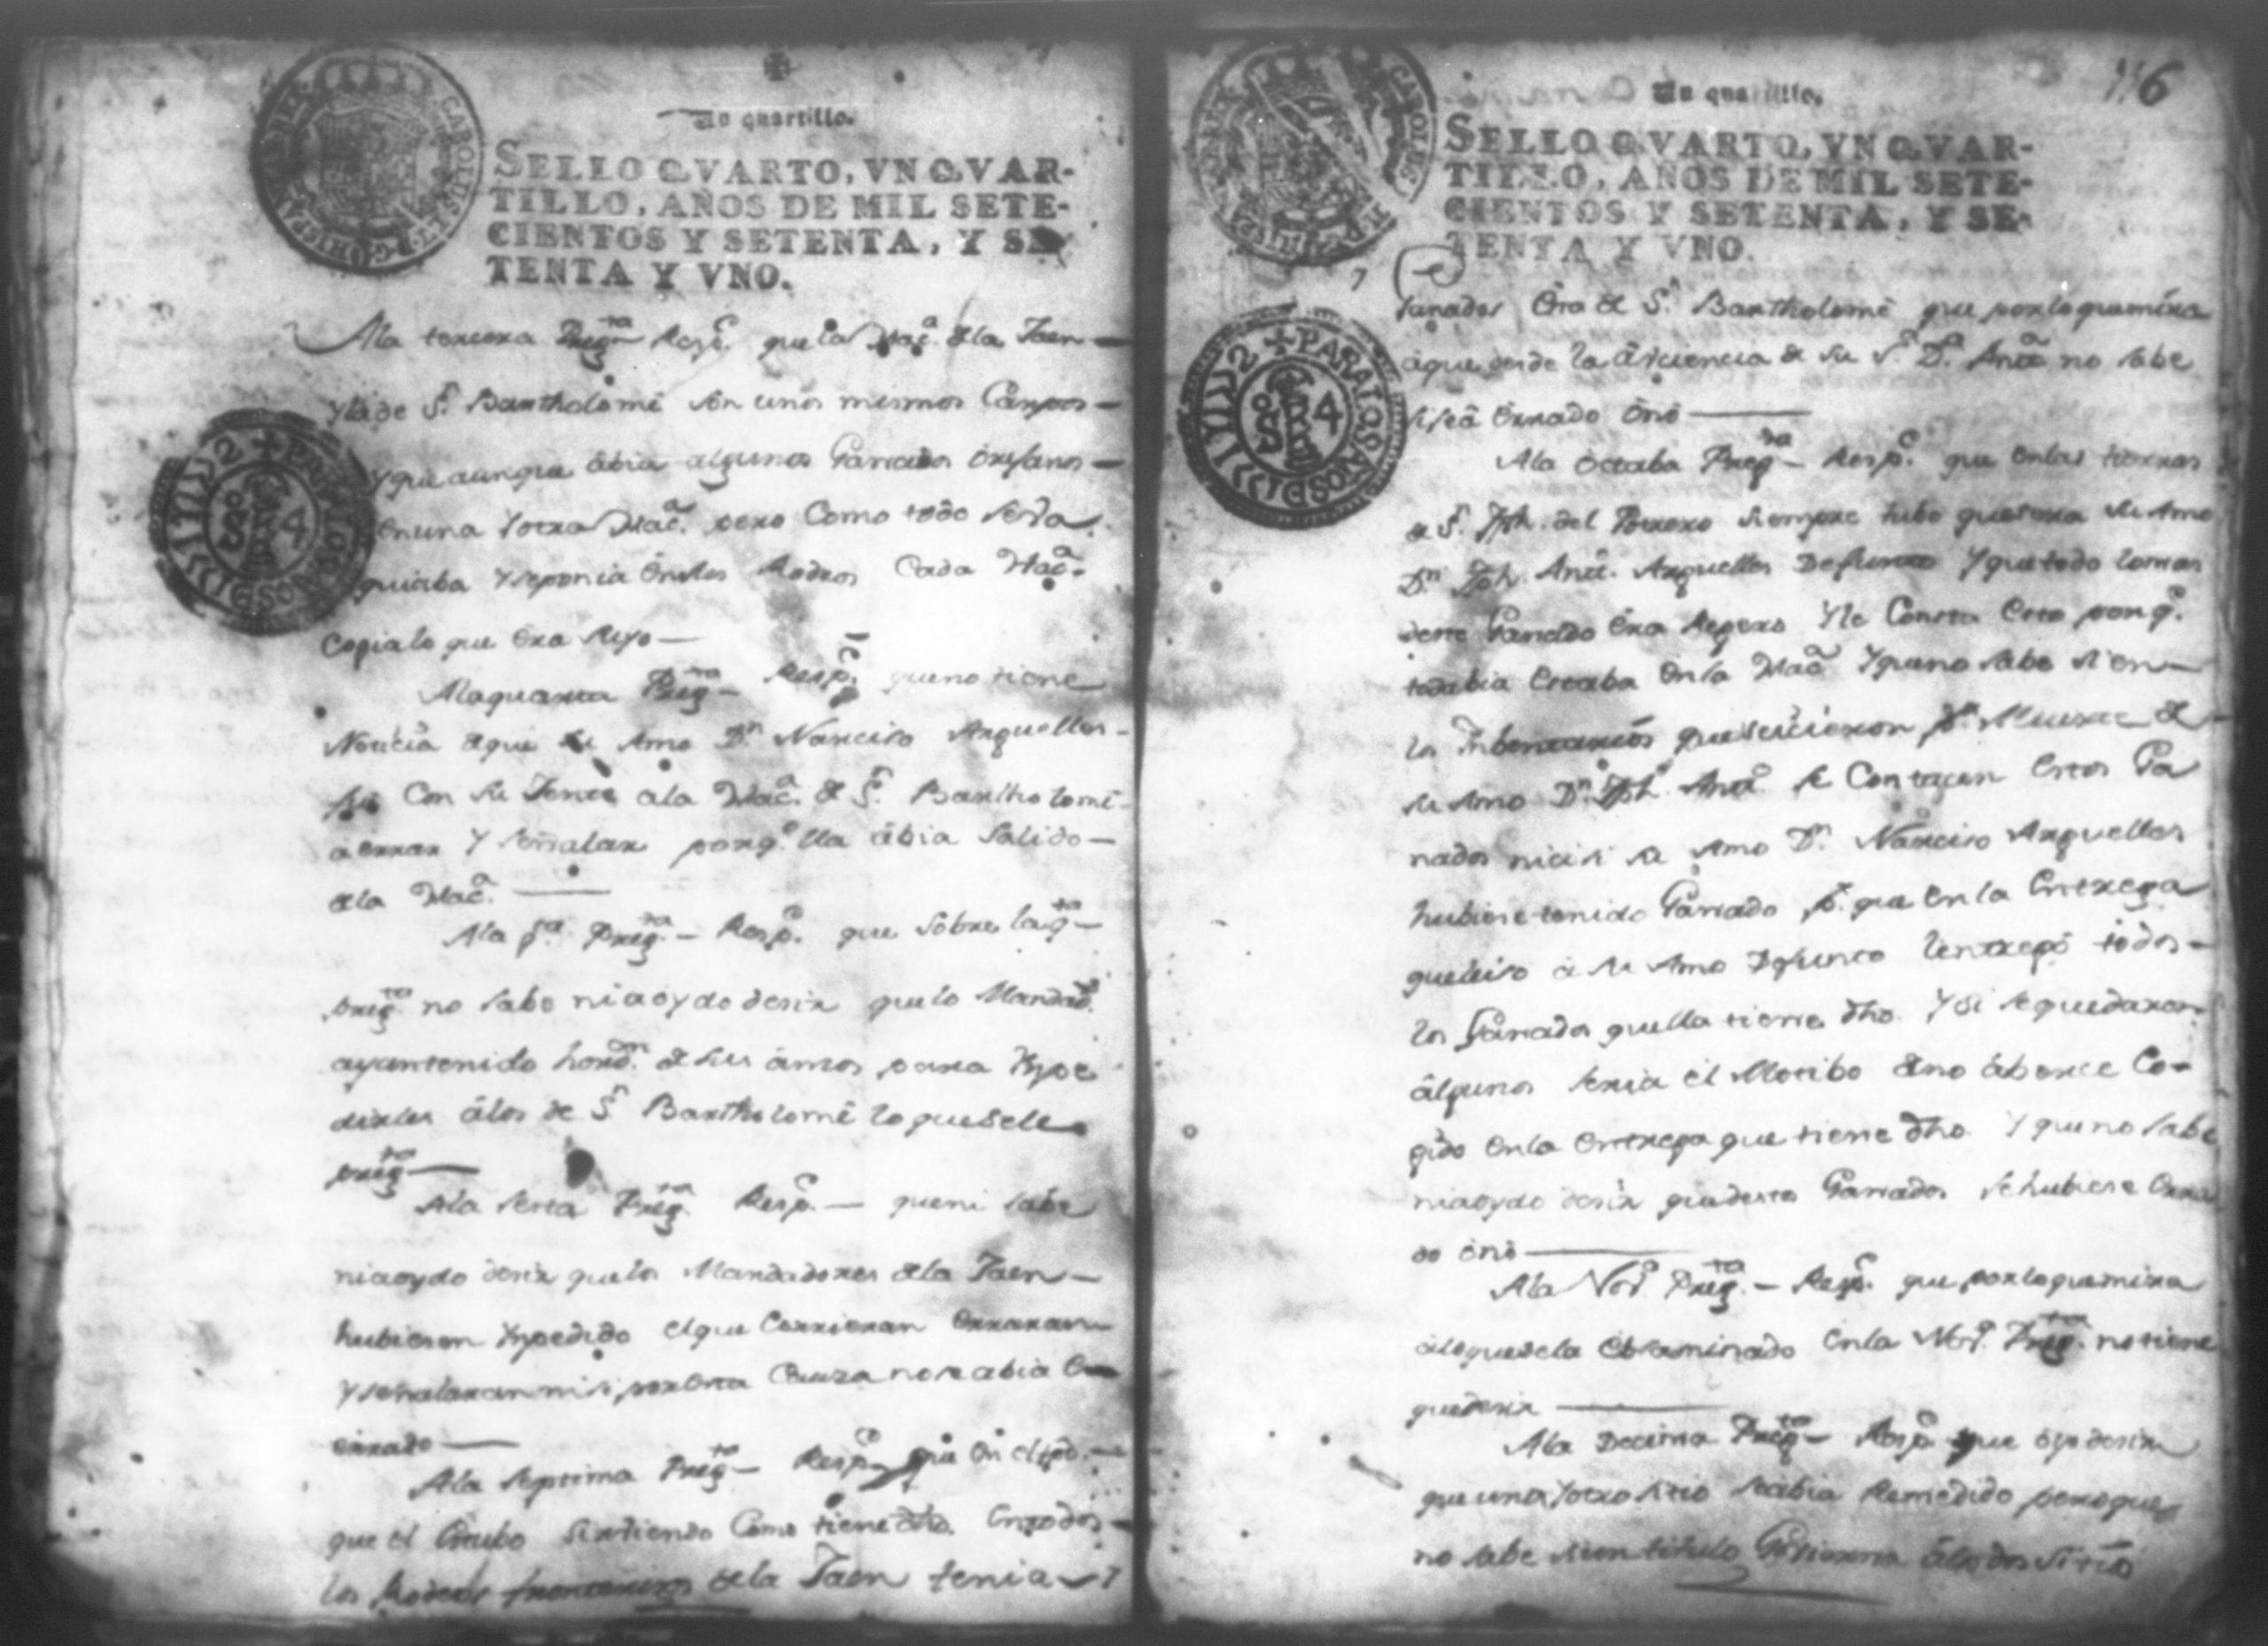 Un quartillo.
SELLO QVARTO, VN QVAR-
TILLO, AÑOS DE MIL SETE-
CIENTOS Y SETENTA, Y SE-
TENTA Y VNO.
Ala tercera Preg.ta Resp.e que la Hac.a dela Jaen
y la de S.n Bartholomé son unos mismos Campos
y que aunque abia algunos Ganados orejanos
en una y otra Hac.a pero Como todo seda
guiaba y se ponia en los Rodeos Cada Hac.a
Cogia lo que era suyo
Ala quarta Preg.ta Resp.e que no tiene
Noticia de que su Amo D.n Narciso Arguelles
fue Con su Jente ala Hac.a de S.n Bartholomé
a errar y señalar porq.e lla abia Salido
dela Hac.a
Ala q.ta Preg.ta Resp.e que sobre la q.ta
preg.ta no sabe ni a oydo desir que lo Mandad.s
ayan tenido hord.n de sus amos para Ynpe
dirles álos de S.n Bartholomé lo que sele
preg.ta
Ala sexta Preg.ta Resp.e que ni sabe
ni a oydo desir que los Mandadores dela Jaen
hubiesen Ynpedido el que Corrieran Erraran
y señalaran ni si por esta Causa no se abia
errado
Ala septima Preg.ta Resp.e que en el tpo.
que el Estubo sirbiendo Como tiene dho. En todos
los Rodeos dela Jaen tenia
Un quartillo.
116
SELLO QVARTO, VN QVAR-
TILLO, AÑOS DE MIL SETE-
CIENTOS Y SETENTA, Y SE-
TENTA Y VNO.
Ganados Era de S.n Bartholomé que por lo que mira
á que desde la de su S.a D.a Ant.a no sabe
si se á Errado ó nó
Ala Octaba Preg.ta Resp.e que en las tierras
de S.n Jph. del Potrero siempre tubo quesera su Amo
D.n Jph. Ant.o Arguelles Defunto y que todo lo mas
deste Ganado Era Rejego y le Consta Esto porq.e
todabia Estaba en la Hac.a y que no sabe si en
los Inbentarios que se icieron p.r Muerte de
su Amo D.n Jph. Ant.o se Contasen Estos Ga
nados ni si su Amo D.n Narciso Arguelles
hubiese tenido Ganado p.r que en la Entrega
que hiso á su Amo Defunto le entregó todos
los Ganados que lla tiene dho. y si se quedaron
algunos seria el Motibo de no aberse Co-
gido en la Entrega que tiene dho. y que no sabe
ni a oydo desir que destos Ganados se hubiese Erra
do ó nó
Ala Nov.a Preg.ta Resp.e que por lo que mira
á lo que se la Ecsaminado en la Nov.a Preg.ta no tiene
que desir
Ala Decima Preg.ta Resp.e que oyo desir
que uno y otro sitio se abia Remedido pero que
no sabe si un titulo álos dos Sitios